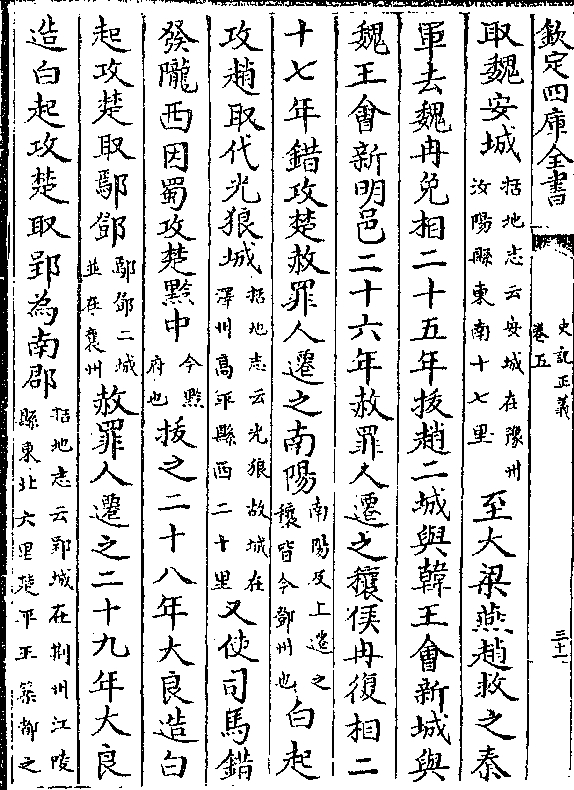 欽定四庫全書
史記正義
卷五
三十一
取魏安城括地志云安城在豫州汝陽縣東南十七里至大梁燕趙救之秦
軍去魏冉免相二十五年拔趙二城與韓王會新城與
魏王會新明邑二十六年赦罪人遷之穰侯冉復相二
十七年錯攻楚赦罪人遷之南陽南陽及上遷之穰皆今鄧州也白起
攻趙取代光狼城括地志云光狼故城在澤州高平縣西二十里又使司馬錯
發隴西因蜀攻楚黔中今黔府也拔之二十八年大良造白
起攻楚取鄢鄧鄢鄧二城並在襄州赦罪人遷之二十九年大良
造白起攻楚取郢為南郡括地志云郢城在荆州江陵縣東北六里楚平王築都之